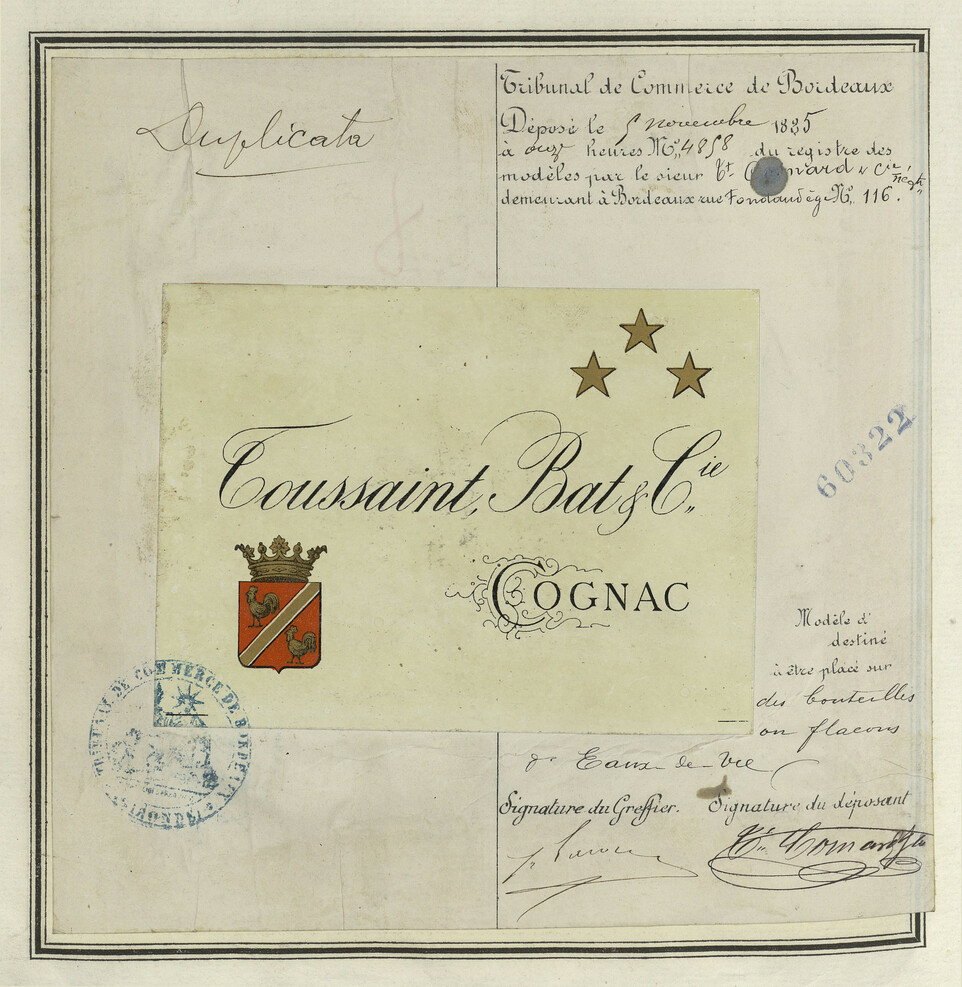 Duplicata
Tribunal de Commerce de Bordeaux
Déposé le 5 novembre 1885
à onze heures No. 4858 du registre des
modèles par le sieur Vt. & Cie Négts
demeurant à Bordeaux rue Fondaudège No. 116.
Toussaint, Bat & Cie
COGNAC
60322
Modèle d'
destiné
à être placé sur
des bouteilles
ou flacons
d' Eaux-de-Vie
TRIBUNAL DE COMMERCE DE BORDEAUX
(GIRONDE)
Signature du Greffier. Signature du déposant